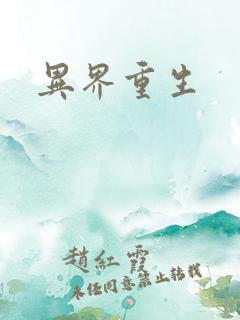 異界重生
趙紅霞
未经同意禁止转载